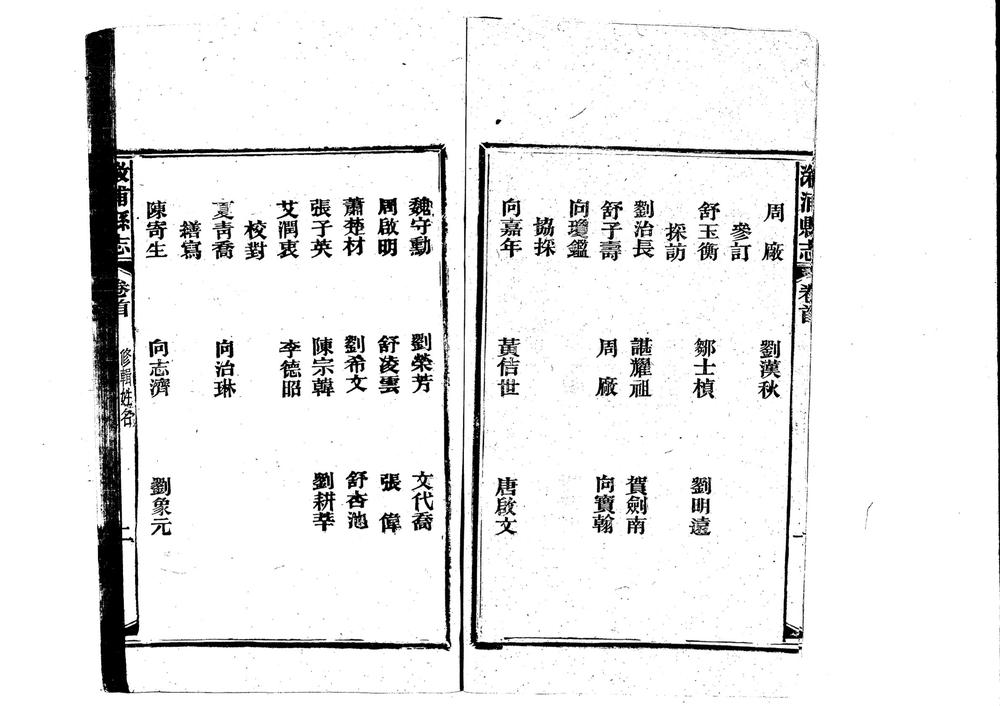 漵浦縣志 卷首
周廠 劉漢秋
參訂
舒玉衡 鄒士楨 劉明遠
採訪
劉治長 諶耀祖 賀劍南
舒子壽 周廠 向寶翰
向瓊鑑
協採
向嘉年 黃佶世 唐啟文
魏守勳 劉榮芳 文代喬
周啟明 舒凌雲 張偉
蕭楚材 劉希文 舒杏池
張子英 陳宗韓 劉耕莘
艾潤衷 李德昭
校對
夏青喬 向治琳
繕寫
陳寄生 向志濟 劉象元
漵浦縣志 卷首 修輯姓名 二